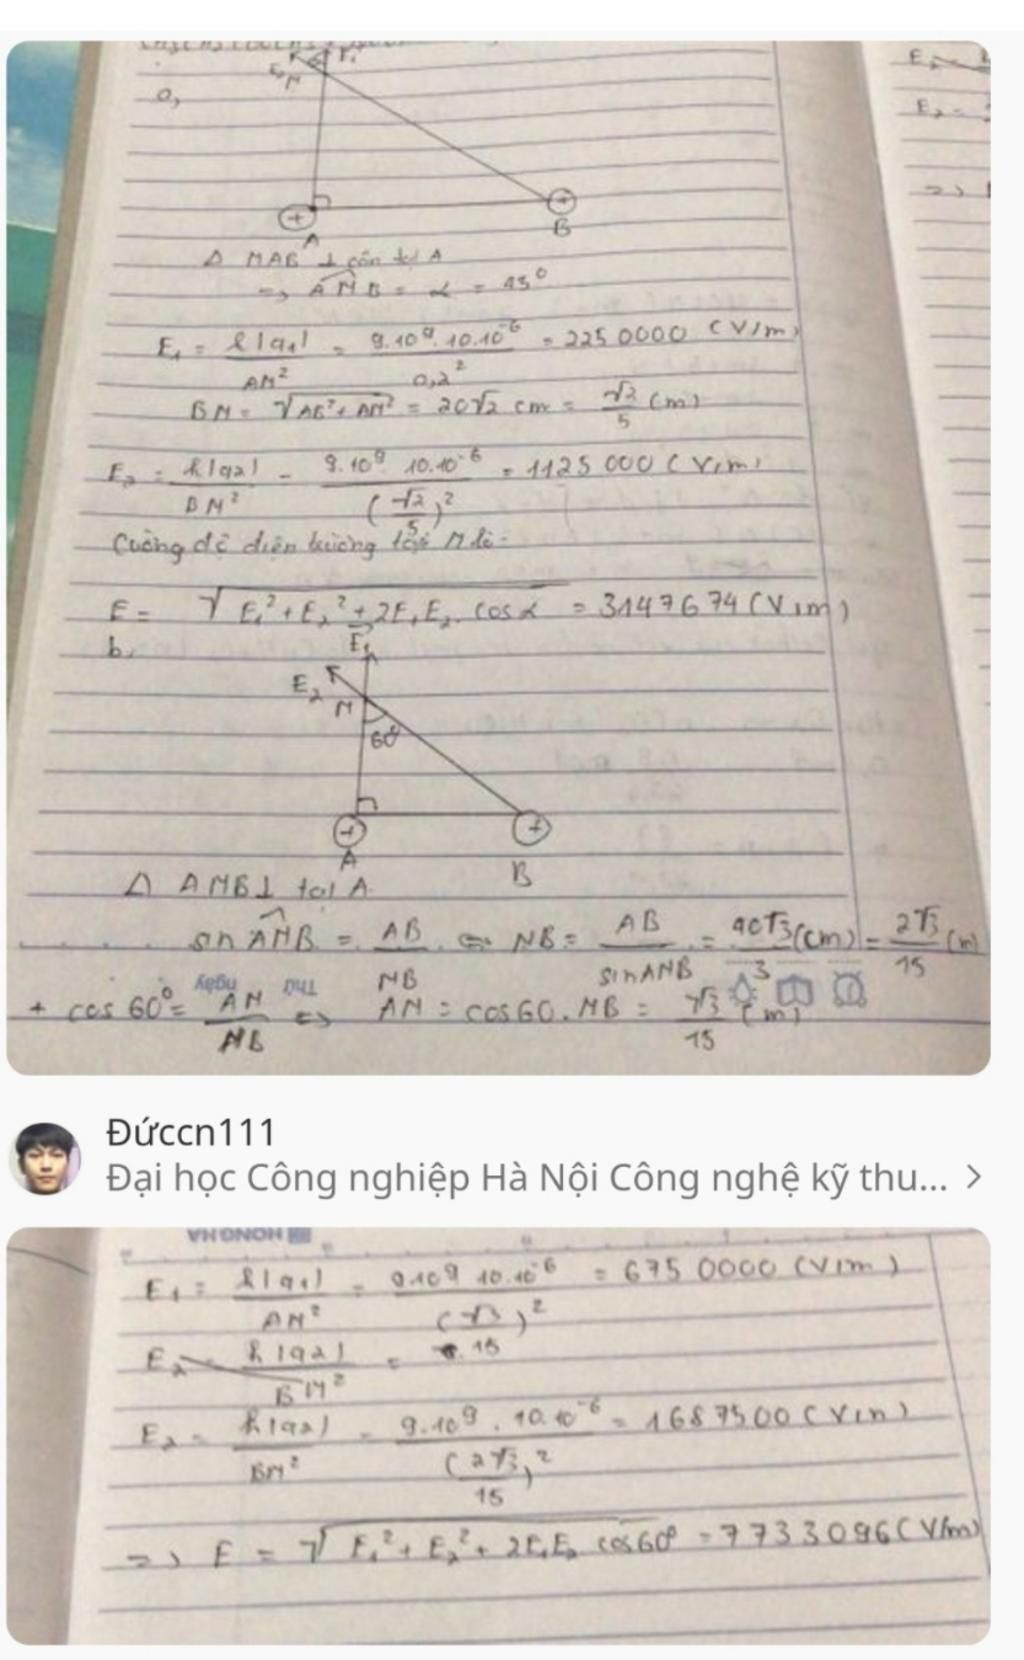 E₂ M E₁
a,
A B
Δ MAB ⊥ cân tại A
=> AMB = α = 45⁰
E₁ = k|q₁| / AM² = 9.10⁹.10.10⁻⁶ / 0,2² = 2250000 (V/m)
BM = √AB²+AM² = 20√2 cm = √2/5 (m)
E₂ = k|q2| / BM² = 9.10⁹ 10.10⁻⁶ / (√2/5)² = 1125 000 (V/m)
Cường độ điện trường tại M là:
E = √E₁²+E₂²+2E₁E₂.cosα = 3147674 (V/m)
b, E₁
E₂
M
60⁰
A B
Δ AMB ⊥ tại A
sin AMB = AB / MB <=> MB = AB / sinAMB = 40√3/3 (cm) = 2√3/15 (m)
Thứ Ngày
+ cos 60⁰ = AM / MB <=> AM = cos60.MB = √3/15 (m)
Đứccn111
Đại học Công nghiệp Hà Nội Công nghệ kỹ thu...
HONG HA
E₁ = k|q₁| / AM² = 9.10⁹ 10.10⁻⁶ / (√3/15)² = 675 0000 (V/m)
E₂ = k|q2| / BM² =
E₂ = k|q2| / BM² = 9.10⁹.10.10⁻⁶ / (2√3/15)² = 1687500 (V/m)
=> E = √E₁²+E₂²+2E₁E₂ cos60⁰ = 7733096 (V/m)